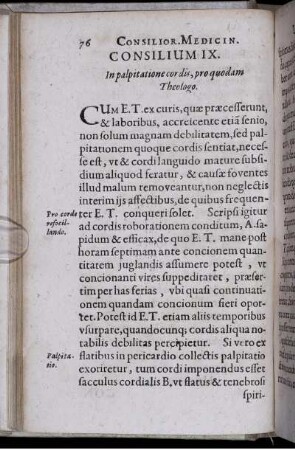 76 CONSILIOR. MEDICIN.
CONSILIUM IX.
In palpitatione cordis, pro quodam
Theologo.
CUM E.T. ex curis, quæ præcesserunt,
& laboribus, accrescente etiā senio,
non solum magnam debilitatem, sed pal-
pitationem quoque cordis sentiat, neces-
se est, vt & cordi languido mature subsi-
dium aliquod feratur, & causæ foventes
illud malum removeantur, non neglectis
interim ijs affectibus, de quibus frequen-
Pro corde
refocil-
lando.
ter E. T. conqueri solet. Scripsi igitur
ad cordis roborationem conditum, A. sa-
pidum & efficax, de quo E. T. mane post
horam septimam ante concionem quan-
titatem juglandis assumere potest, vt
concionanti vires suppeditaret, præser-
tim per has ferias, vbi quasi continuati-
onem quandam concionum fieri opor-
tet. Potest id E.T. etiam aliis temporibus
vsurpare, quandocunq; cordis aliqua no-
tabilis debilitas percipietur. Si vero ex
Palpita-
tio.
flatibus in pericardio collectis palpitatio
exoriretur, tum cordi imponendus esset
sacculus cordialis B, vt flatus & tenebrosi
spiri-